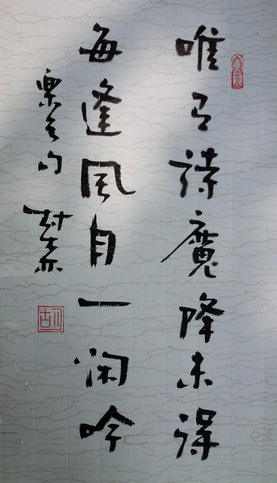 唯有詩魔降未得
每逢風月一闲吟
樂天句